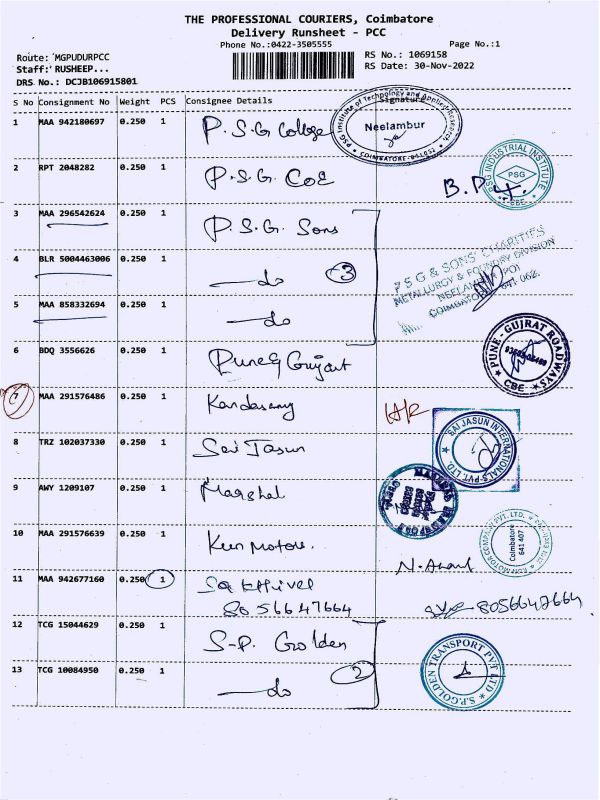 THE PROFESSIONAL COURIERS, Coimbatore
Delivery Runsheet - PCC
Phone No.:0422-3505555 Page No.:1
Route: MGPUDURPCC RS No.: 1069158
Staff: RUSHEEP... RS Date: 30-Nov-2022
DRS No.: DCJB106915801
S No Consignment No Weight PCS Consignee Details Signature
1 MAA 942180697 0.250 1 P.S.G College
PSG Institute of Technology and Applied Research, Neelambur COIMBATORE-641062
2 RPT 2048282 0.250 1 P.S.G. CoE
PSG INDUSTRIAL INSTITUTE PSG CBE
3 MAA 296542624 0.250 1 P.S.G. Sons
4 BLR 5004463006 0.250 1 do 3
PSG & SONS' CHARITIES
METALLURGY & FOUNDRY DIVISION
NEELAMBUR (PO)
COIMBATORE - 641 062.
5 MAA 858332694 0.250 1 do
6 BDQ 3556626 0.250 1 Pune Gujart
PUNE - GUJRAT ROADWAYS CBE
7 MAA 291576486 0.250 1 Kandasamy
8 TRZ 102037330 0.250 1 Sai Jasun
SAI JASUN INTERNATIONALS PVT. LTD
9 AWY 1209107 0.250 1 Marshal
10 MAA 291576639 0.250 1 Kun Motors. N. Anand
MOTOR COMPANY PVT. LTD. Coimbatore 641 407
11 MAA 942677160 0.250 1 Sakthivel
8056647664 8056647664
12 TCG 15044629 0.250 1 S-P. Golden
13 TCG 10084950 0.250 1 do 2
S.P.GOLDEN TRANSPORT PVT LTD